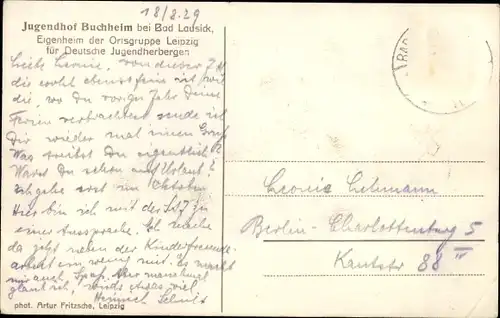 18/8.29
Jugendhof Buchheim bei Bad Lausick,
Eigenheim der Ortsgruppe Leipzig
für Deutsche Jugendherbergen
Liebe Leonie, von dieser J.H.
die wohl ebenso fein ist wie
die, wo Du voriges Jahr Deine
Ferien verbrachtest sende ich
Dir wieder mal einen Gruß
Was treibst Du eigentlich?
Warst Du schon auf Urlaub?
ich gehe erst im Oktober
Hier bin ich mit der
einer Aussprache. Ich mache
da jetzt neben der Kinderfreunde-
arbeit ein wenig mit. Es macht
mir auch Spaß. Aber manchmal
glaub ich, wirds etwas viel
Heinrich Schulz
phot. Artur Fritzsche, Leipzig
BAD
Leonie Lehmann
Berlin-Charlottenburg 5
Kantstr 88 III